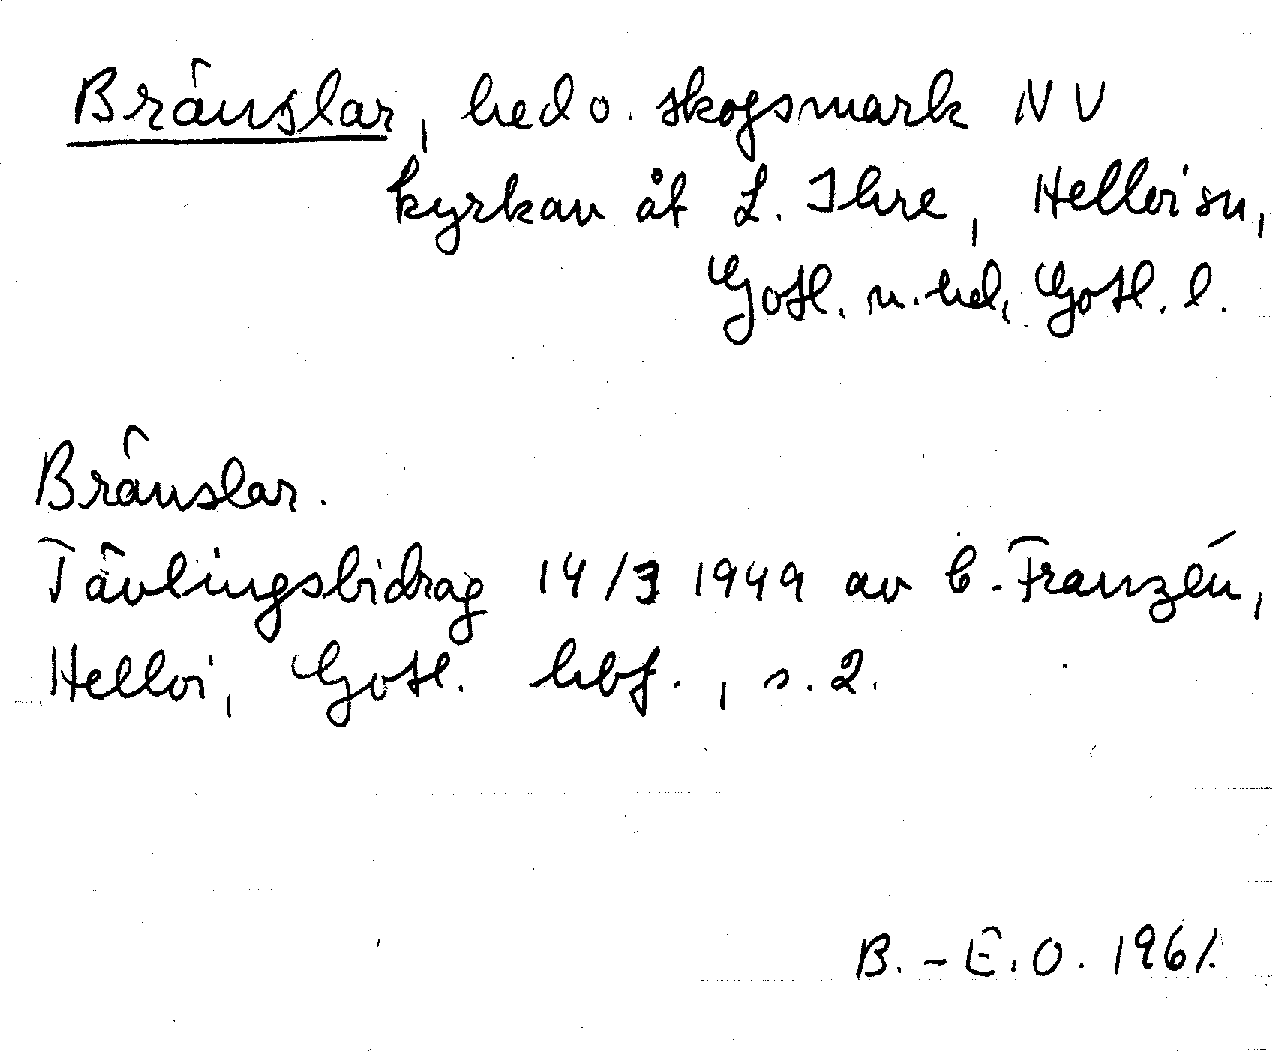 Bränslar, hed o. skogsmark NV
kyrkan åt L. Ihre, Hellvi sn,
Gotl. n. hd, Gotl. l.
Bränslar.
Tävlingsbidrag 14/3 1949 av C. Franzén,
Hellvi, Gotl. hbf., s. 2.
B.-E.O. 1961.